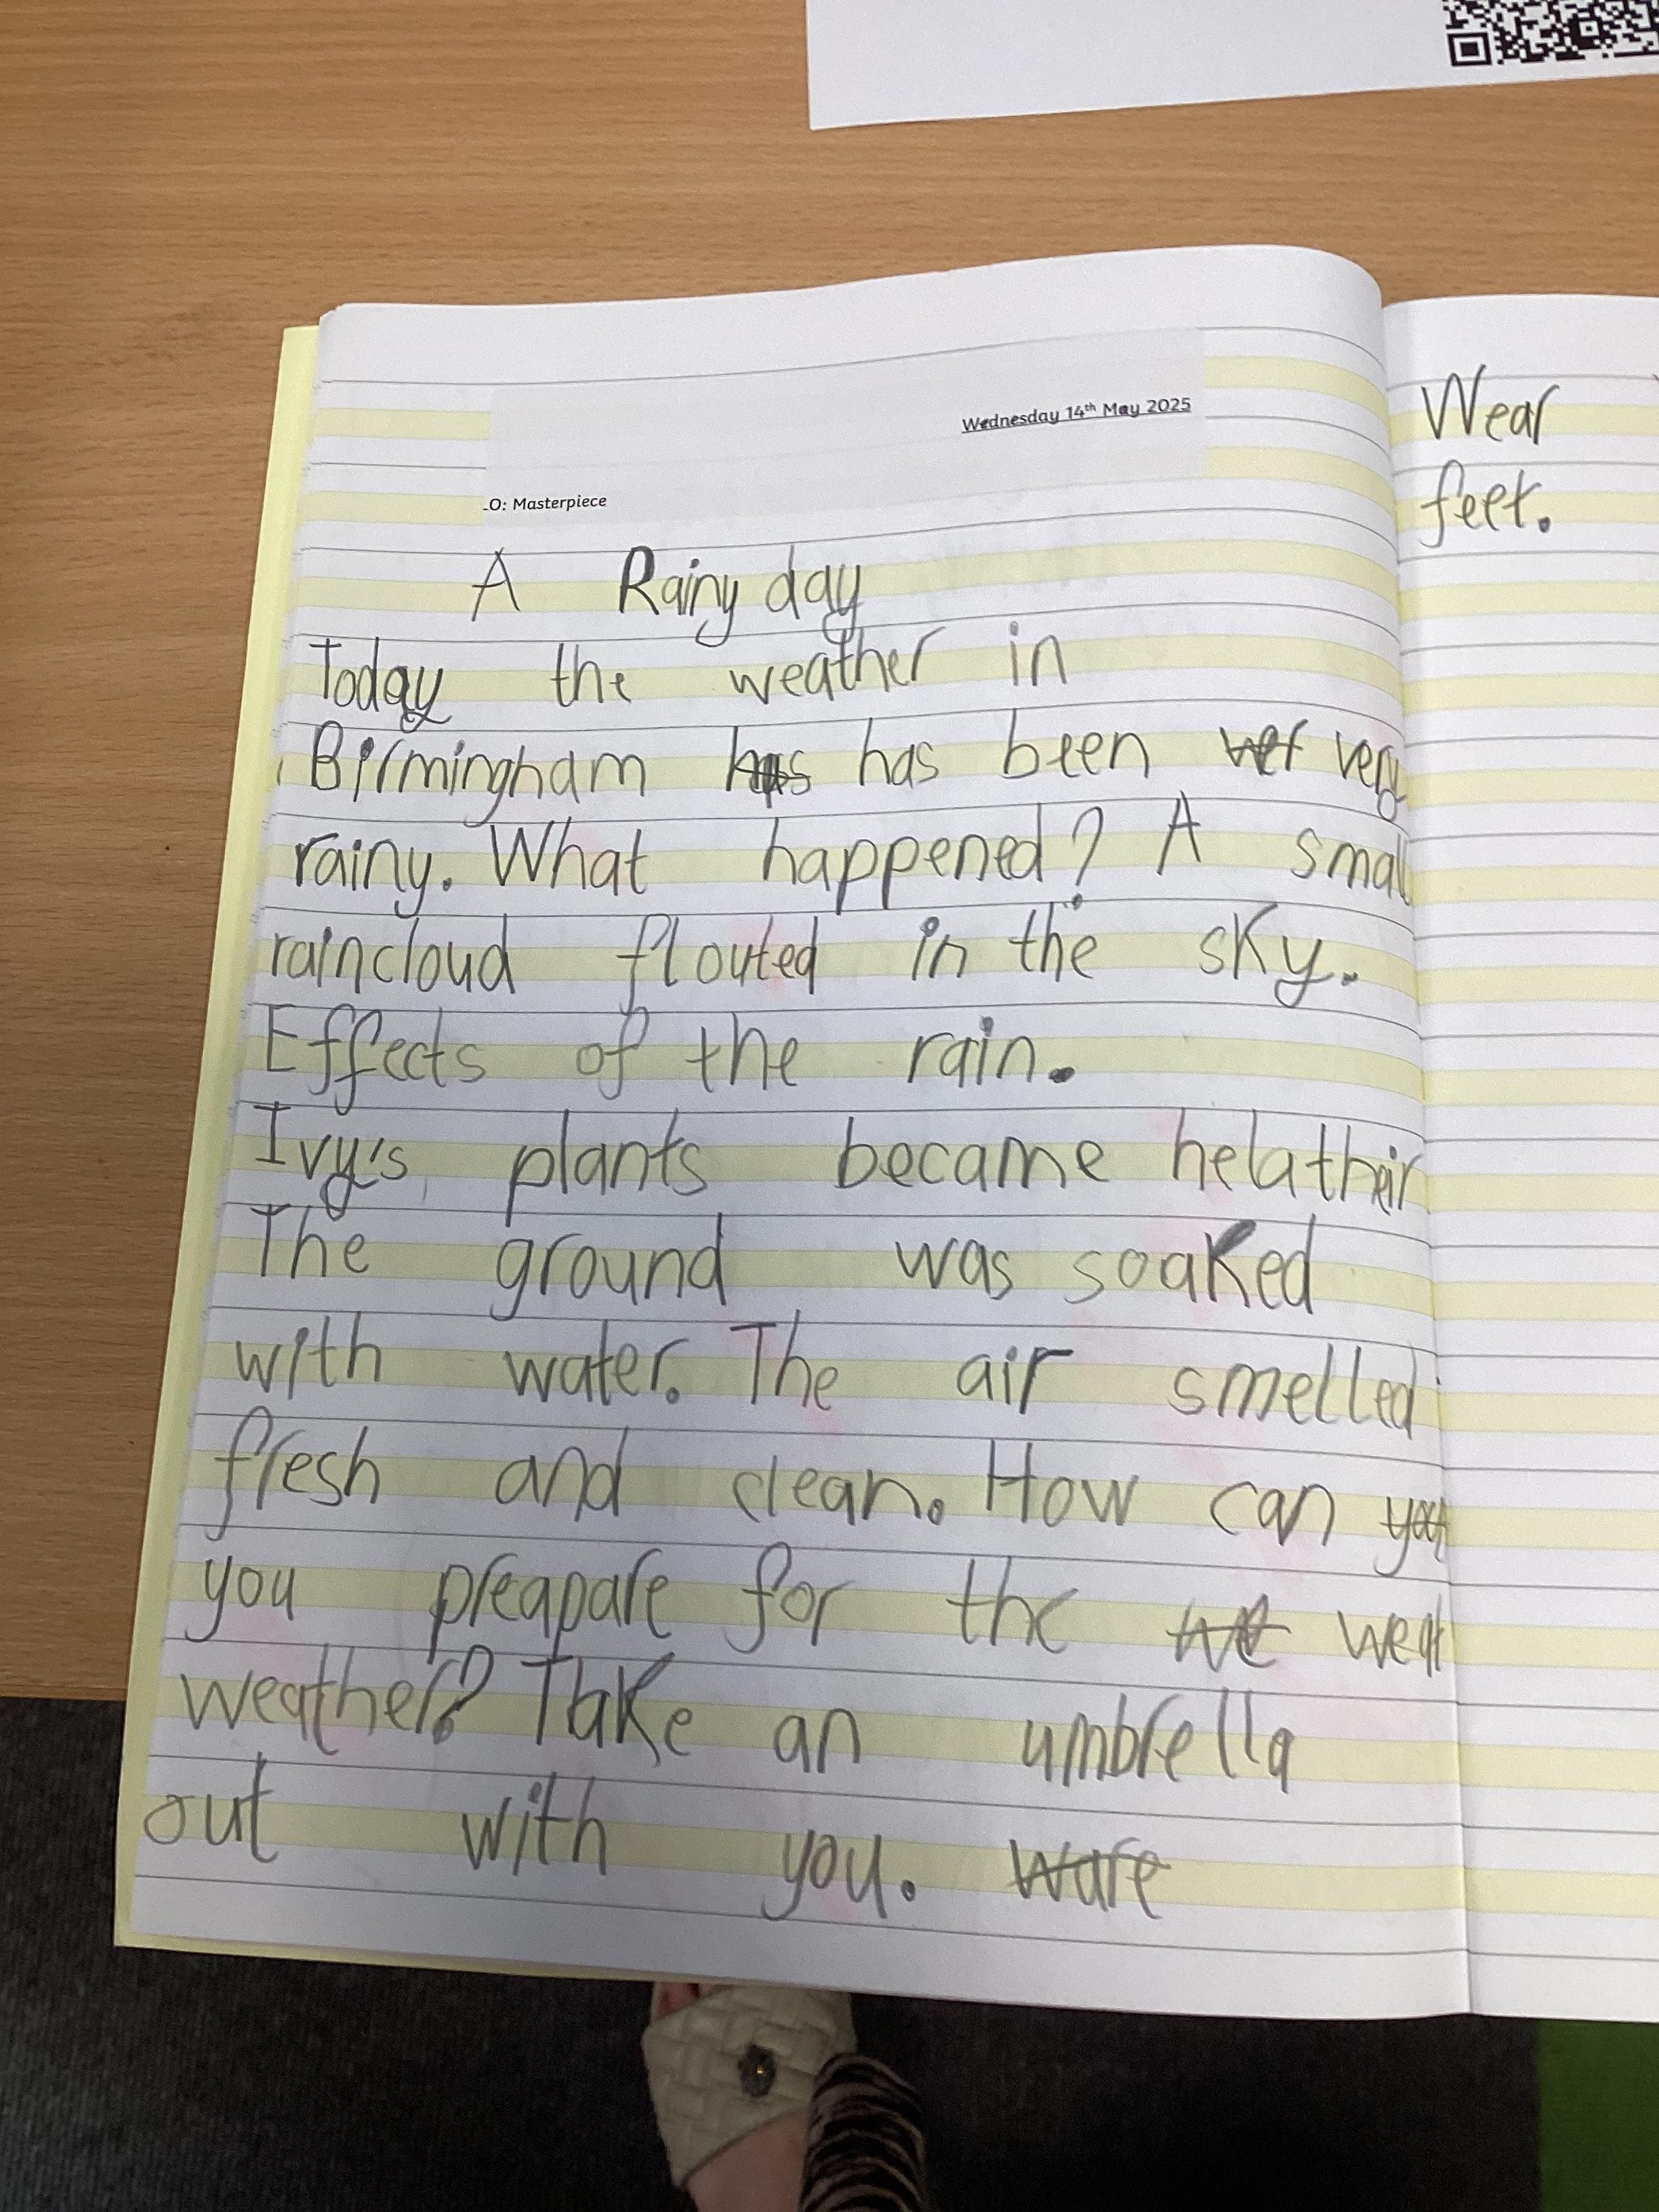 Wednesday 14th May 2025
LO: Masterpiece
A Rainy day
Today the weather in
Birmingham has has been wer very
rainy. What happened? A small
raincloud flouted in the sky.
Effects of the rain.
Ivy's plants became helatheir
The ground was soaked
with water. The air smelled
fresh and clean. How can you
you preapare for the we weat
weather? Take an umbrella
out with you. ware
Wear
feet.